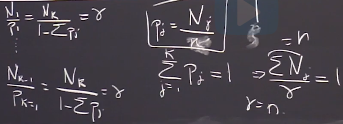 N₁/P₁ = N_K/(1-ΣP_j) = γ
⋮
N_{K-1}/P_{K-1} = N_K/(1-ΣP_j) = γ
P_j = N_j/n
Σ_{j=1}^{K} P_j = 1 ⇒ ΣN_j/γ = 1
= n
γ = n.